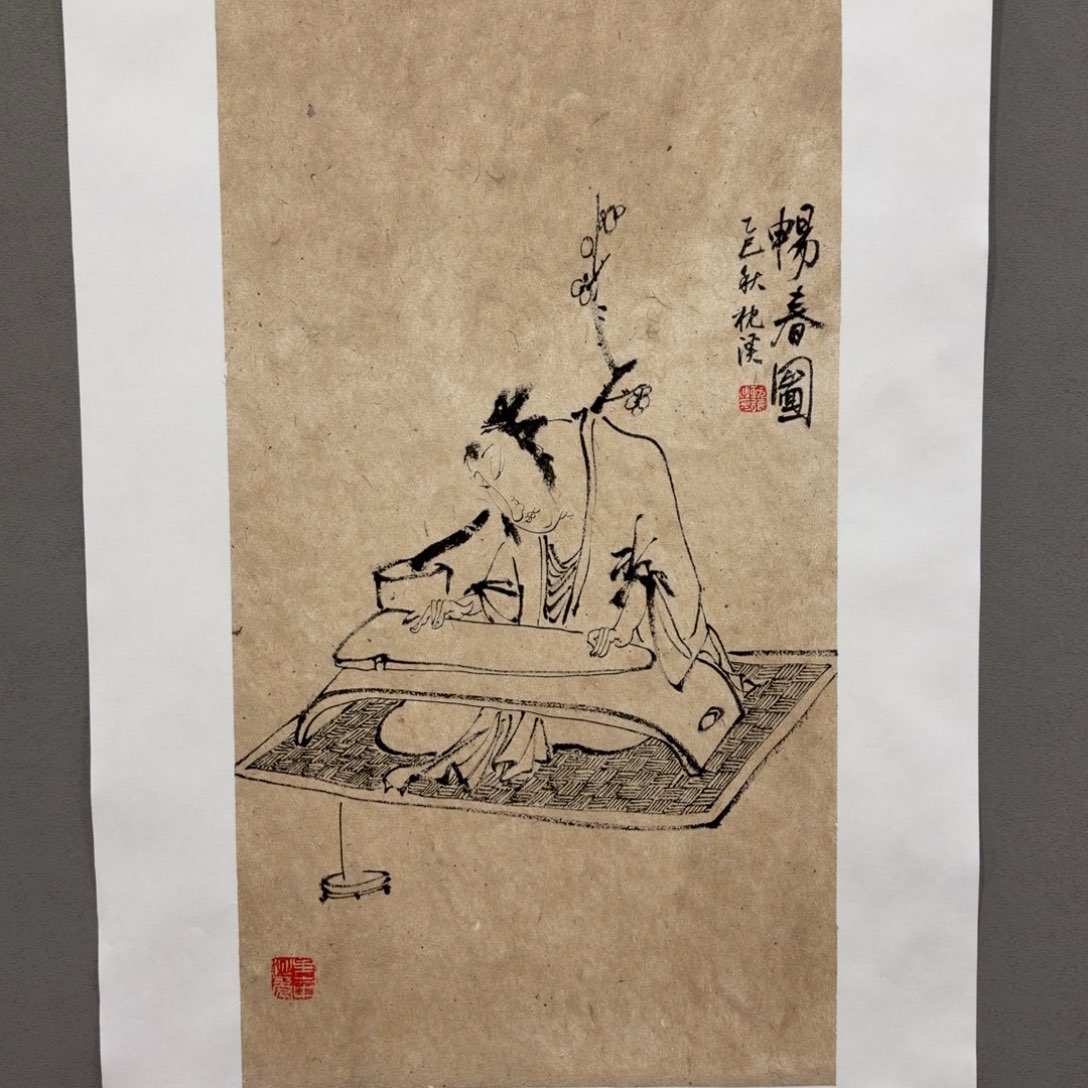 暢春圖
乙巳秋枕漢